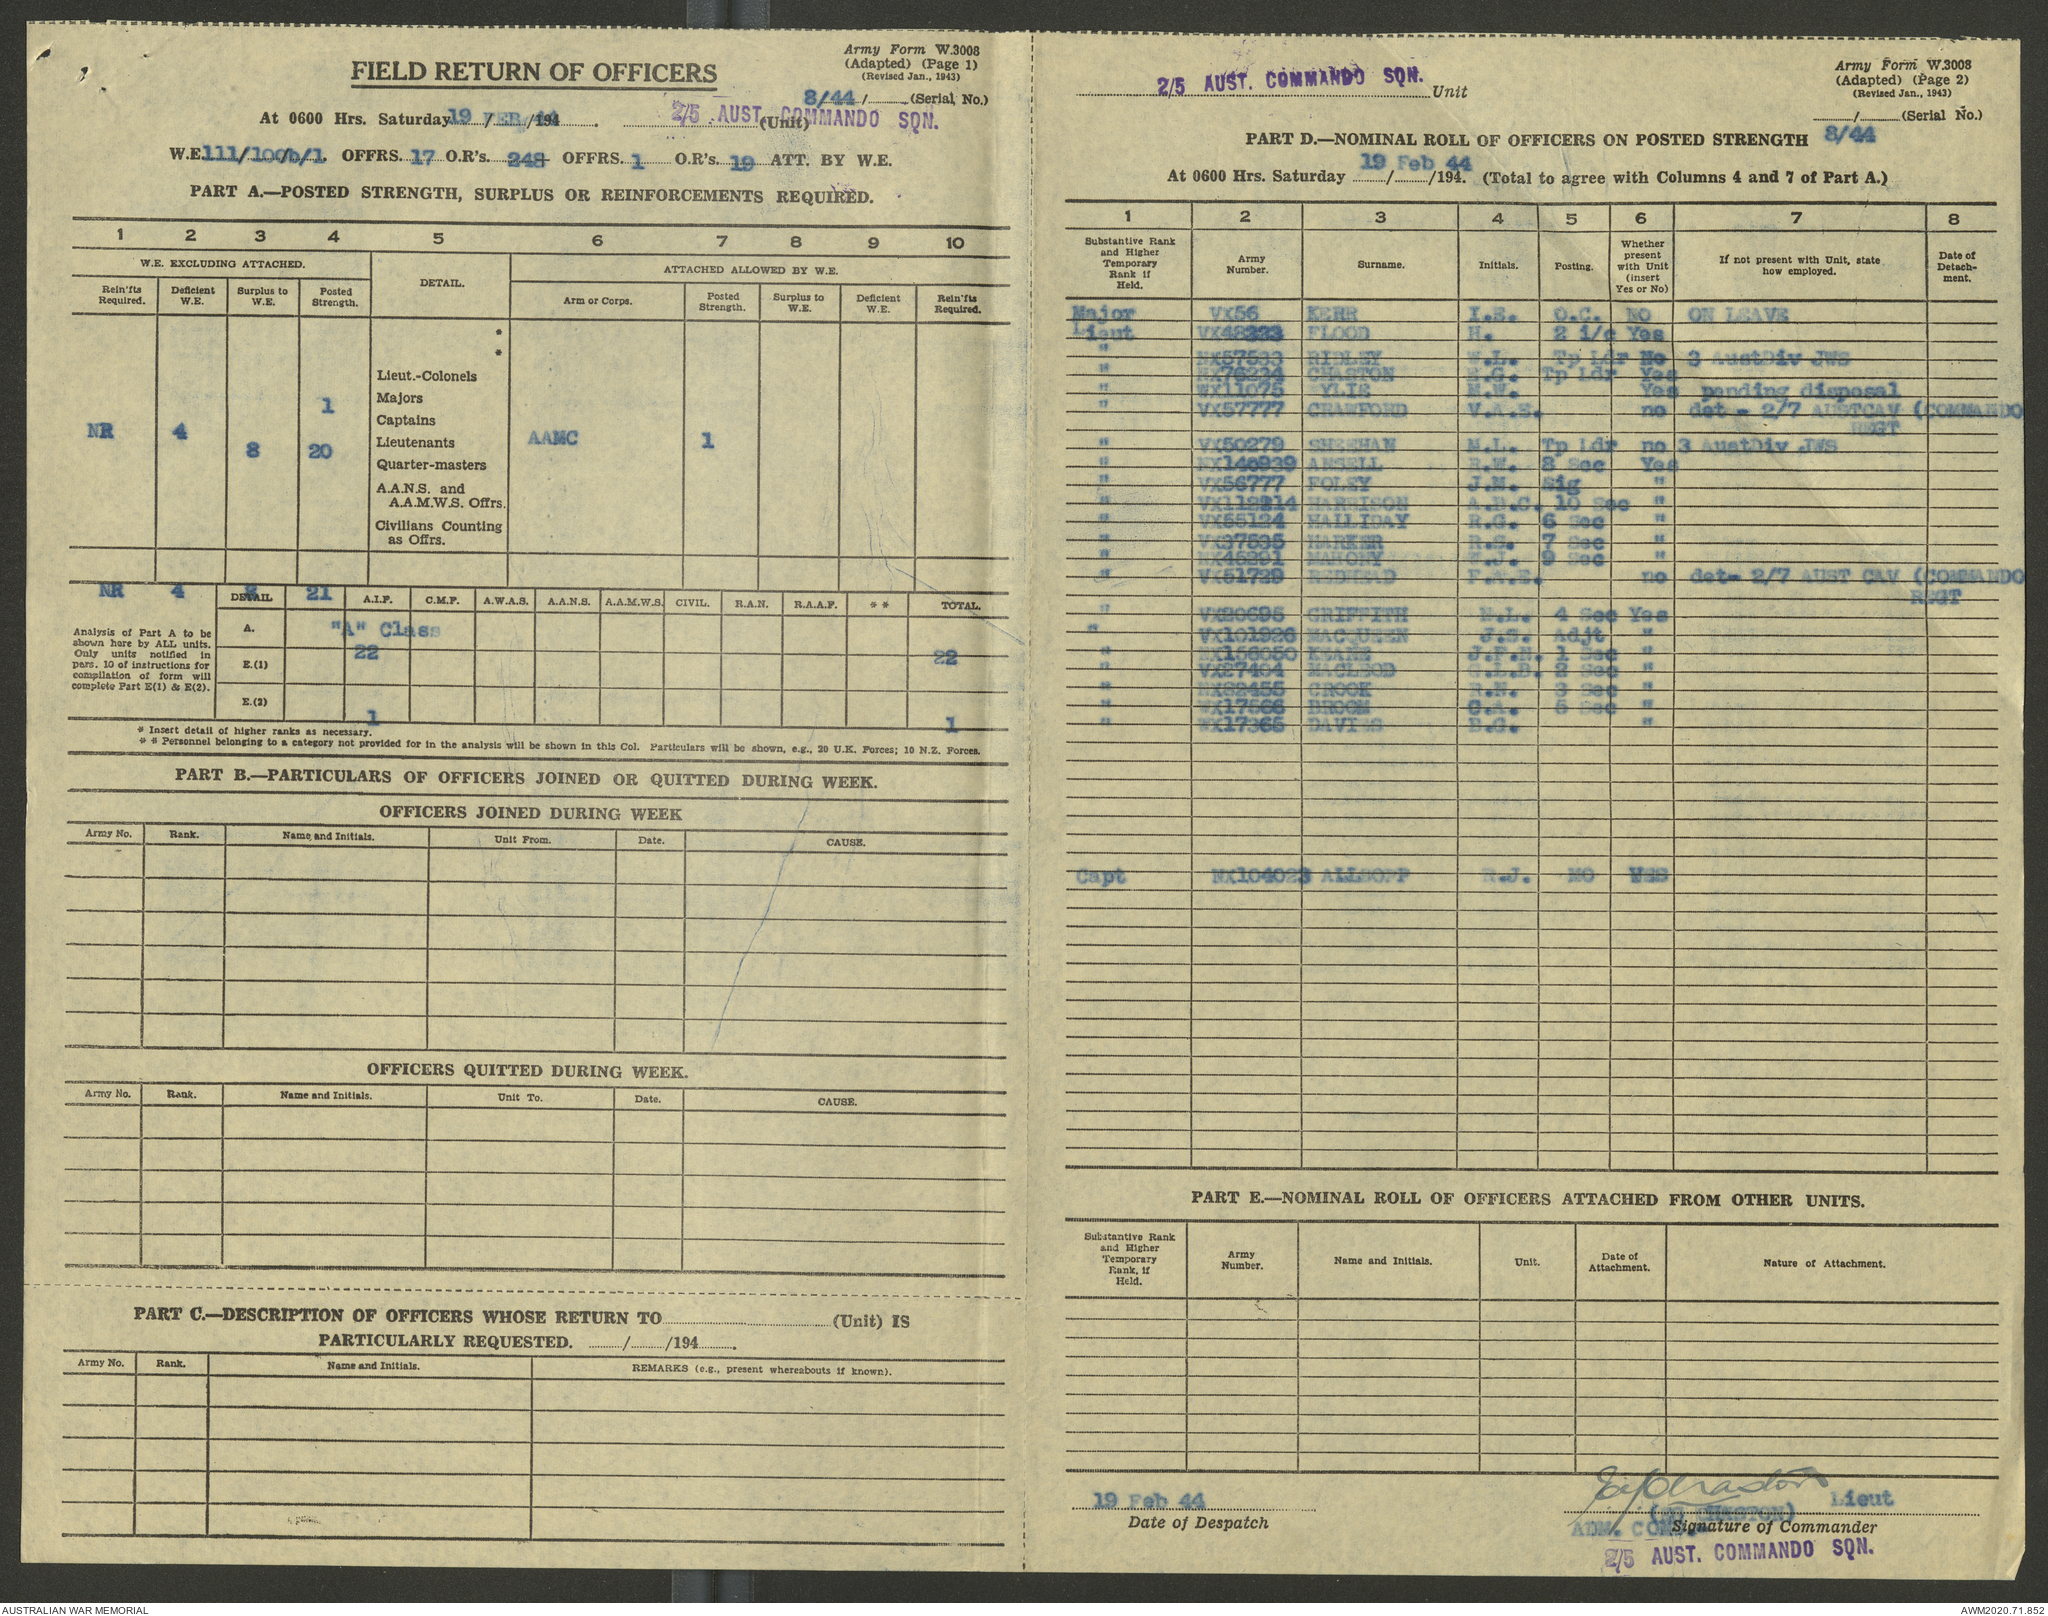 Army Form W.3008
(Adapted) (Page 1)
(Revised Jan., 1943)
FIELD RETURN OF OFFICERS
8/44 / (Serial No.)
At 0600 Hrs. Saturday 19 / FEB /194 2/5 AUST. COMMANDO SQN. (Unit)
W.E. 111/100b/1. OFFRS. 17 O.R's. 248 OFFRS. 1 O.R's. 19 ATT. BY W.E.
PART A.—POSTED STRENGTH, SURPLUS OR REINFORCEMENTS REQUIRED.
1 2 3 4 5 6 7 8 9 10
W.E. EXCLUDING ATTACHED. DETAIL. ATTACHED ALLOWED BY W.E.
Rein'fts Required. Deficient W.E. Surplus to W.E. Posted Strength. Arm or Corps. Posted Strength. Surplus to W.E. Deficient W.E. Rein'fts Required.
*
*
Lieut.-Colonels
1 Majors
Captains
NR 4 8 20 Lieutenants AAMC 1
Quarter-masters
A.A.N.S. and
A.A.M.W.S. Offrs.
Civilians Counting
as Offrs.
NR 4 21
DETAIL A.I.F. C.M.F. A.W.A.S. A.A.N.S. A.A.M.W.S. CIVIL. R.A.N. R.A.A.F. * * TOTAL.
Analysis of Part A to be
shown here by ALL units.
Only units notified in
para. 10 of instructions for
compilation of form will
complete Part E(1) & E(2).
A. "A" Class
22 22
E.(1)
E.(2)
1 1
* Insert detail of higher ranks as necessary.
* * Personnel belonging to a category not provided for in the analysis will be shown in this Col. Particulars will be shown, e.g., 20 U.K. Forces; 10 N.Z. Forces.
PART B.—PARTICULARS OF OFFICERS JOINED OR QUITTED DURING WEEK.
OFFICERS JOINED DURING WEEK
Army No. Rank. Name and Initials. Unit From. Date. CAUSE.
OFFICERS QUITTED DURING WEEK.
Army No. Rank. Name and Initials. Unit To. Date. CAUSE.
PART C.—DESCRIPTION OF OFFICERS WHOSE RETURN TO (Unit) IS
PARTICULARLY REQUESTED. / /194 .
Army No. Rank. Name and Initials. REMARKS (e.g., present whereabouts if known).
Army Form W.3008
(Adapted) (Page 2)
(Revised Jan., 1943)
2/5 AUST. COMMANDO SQN. Unit
/ (Serial No.)
PART D.—NOMINAL ROLL OF OFFICERS ON POSTED STRENGTH 8/44
At 0600 Hrs. Saturday 19 Feb 44 / /194. (Total to agree with Columns 4 and 7 of Part A.)
1 2 3 4 5 6 7 8
Substantive Rank and Higher Temporary Rank if Held. Army Number. Surname. Initials. Posting. Whether present with Unit (insert Yes or No) If not present with Unit, state how employed. Date of Detachment.
Major VX56 KERR I.E. O.C. NO ON LEAVE
Lieut VX48333 FLOOD H. 2 i/c Yes
" NX57533 RIDLEY W.L. Tp Ldr No 3 AustDiv JWS
" NX76234 CHASTON E.G. Tp Ldr Yes
" WX11075 WYLIE M.W. Yes pending disposal
" VX57777 CRAWFORD V.A.E. no det - 2/7 AUSTCAV (COMMANDO
REGT
" VX50279 SHEEHAN M.L. Tp Ldr no 3 AustDiv JWS
" NX148939 ANSELL R.W. 8 Sec Yes
" VX56777 FOLEY J.M. Sig "
" VX112214 HARRISON A.B.C. 10 Sec "
" VX55124 HALLIDAY R.G. 6 Sec "
" VX37535 HARKER R.S. 7 Sec "
" NX46291 MAHONY W.J. 9 Sec "
" VX51729 REDHEAD F.A.E. no det- 2/7 AUST CAV (COMMANDO
REGT
" VX20695 GRIFFITH N.L. 4 Sec Yes
" VX101926 MACQUEEN J.S. Adjt "
" NX156050 KEANE J.F.N. 1 Sec "
" VX27404 MACLEOD G.L.B. 2 Sec "
" NX82455 CROOK R.N. 3 Sec "
" WX17566 BROOM C.A. 5 Sec "
" WX17365 DAVIES B.G. "
Capt NX104023 ALLSOPP R.J. MO YES
PART E.—NOMINAL ROLL OF OFFICERS ATTACHED FROM OTHER UNITS.
Substantive Rank and Higher Temporary Rank, if Held. Army Number. Name and Initials. Unit. Date of Attachment. Nature of Attachment.
19 Feb 44
Date of Despatch
EG Chaston
(EG CHASTON) Lieut
ADM. COMD. Signature of Commander
2/5 AUST. COMMANDO SQN.
AUSTRALIAN WAR MEMORIAL
AWM2020.71.852